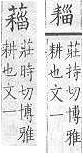 莊持切博雅
耕也文一
莊時切博雅
耕也文一